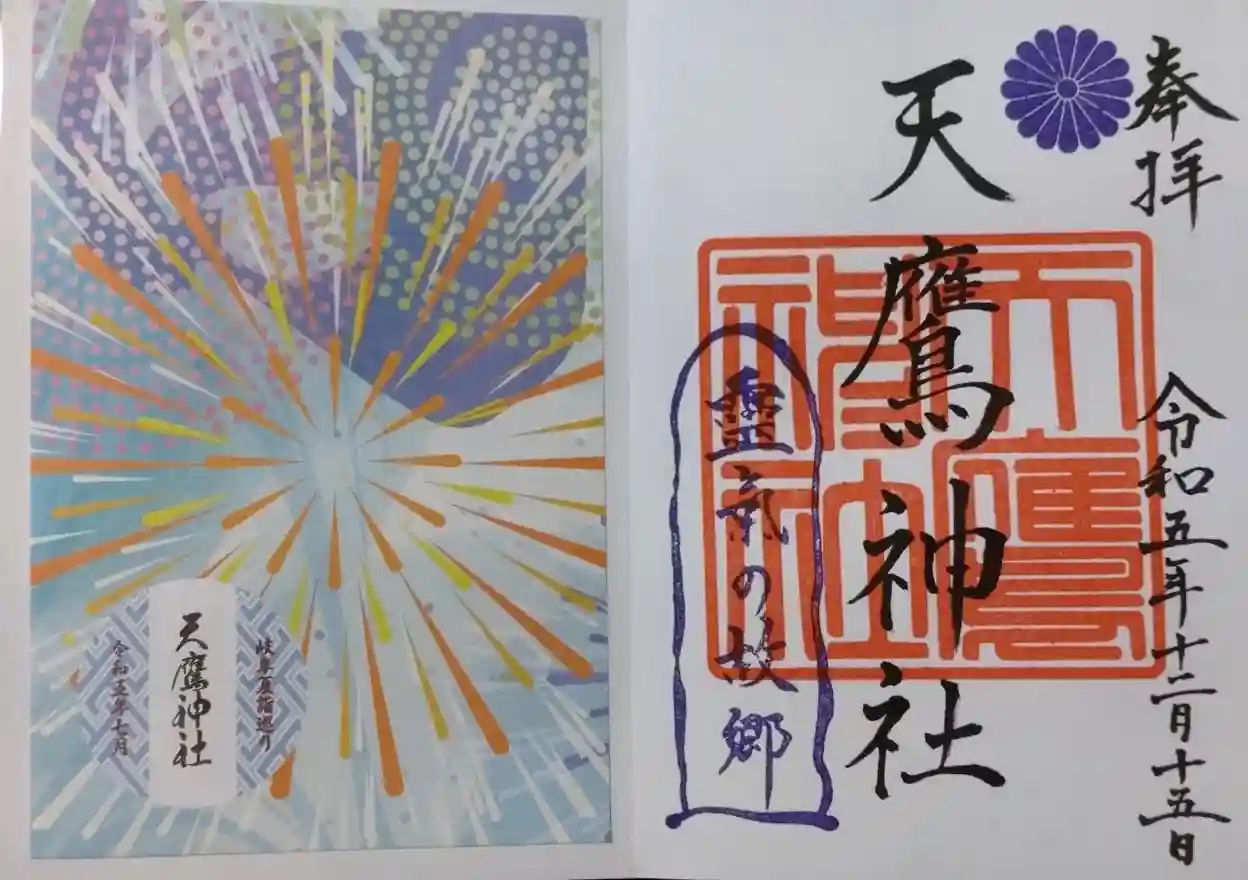 奉拝
天鷹神社
令和五年十二月十五日
天鷹神社
靈氣の故郷
岐阜夏詣巡り
天鷹神社
令和五年七月